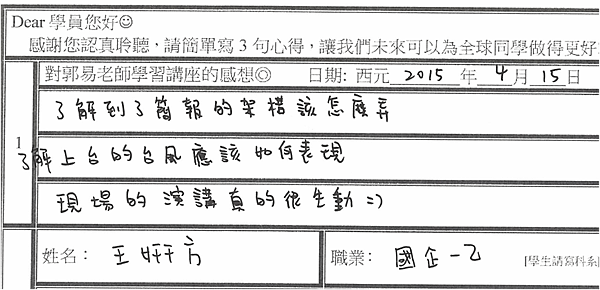 Dear 學員您好☺
感謝您認真聆聽，請簡單寫 3 句心得，讓我們未來可以為全球同學做得更好
對郭易老師學習講座的感想◎ 日期: 西元 2015 年 4 月 15 日
1
了解到了簡報的架構該怎麼弄
了解上台的台風應該如何表現
現場的演講真的很生動=)
姓名： 王妍方 職業： 國企一乙 [學生請寫科系